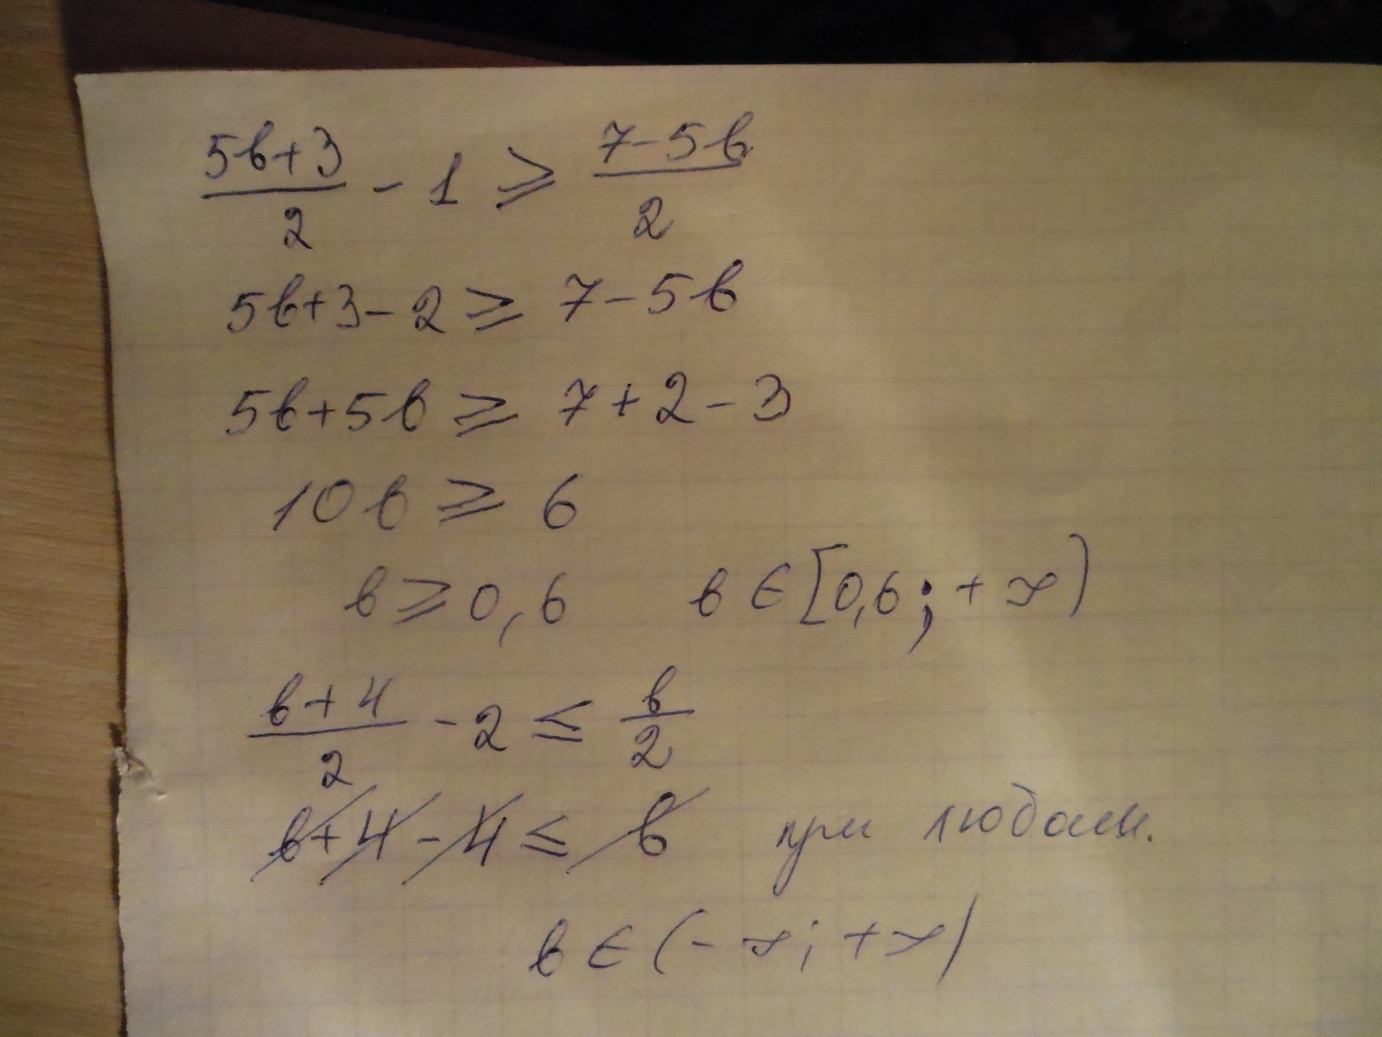 (5в+3)/2 - 1 ≥ (7-5в)/2
5в+3-2 ≥ 7-5в
5в+5в ≥ 7+2-3
10в ≥ 6
в ≥ 0,6 в ∈ [0,6; +∞)
(в+4)/2 - 2 ≤ в/2
в+4-4 ≤ в при любом.
в ∈ (-∞; +∞)